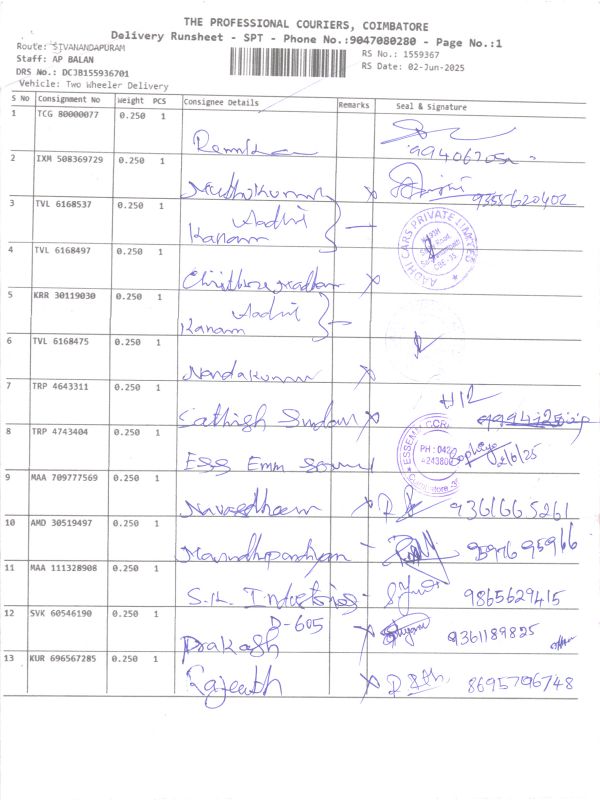 THE PROFESSIONAL COURIERS, COIMBATORE
Delivery Runsheet - SPT - Phone No.:9047080280 - Page No.:1
Route: SIVANANDAPURAM
RS No.: 1559367
Staff: AP BALAN
RS Date: 02-Jun-2025
DRS No.: DCJB155936701
Vehicle: Two Wheeler Delivery
S No Consignment No Weight PCS Consignee Details Remarks Seal & Signature
1 TCG 80000077 0.250 1
2 IXM 508369729 0.250 1
Muthukumar x 9355620402
3 TVL 6168537 0.250 1 Aadhi
Kanam
AADHI CARS PRIVATE LIMITED
4 TVL 6168497 0.250 1
x
5 KRR 30119030 0.250 1 Aadhi
Kanam
6 TVL 6168475 0.250 1
Nandakumar x
7 TRP 4643311 0.250 1 H12
Sathish Sundar x
8 TRP 4743404 0.250 1
PH : 042
4243800
2/6/25
Ess Emm Sound
9 MAA 709777569 0.250 1
x 9361665261
10 AMD 30519497 0.250 1
9597695966
11 MAA 111328908 0.250 1
S.K. Industries - 9865629415
12 SVK 60546190 0.250 1 D-605
Prakash x 9361189825
13 KUR 696567285 0.250 1
x 8695796748